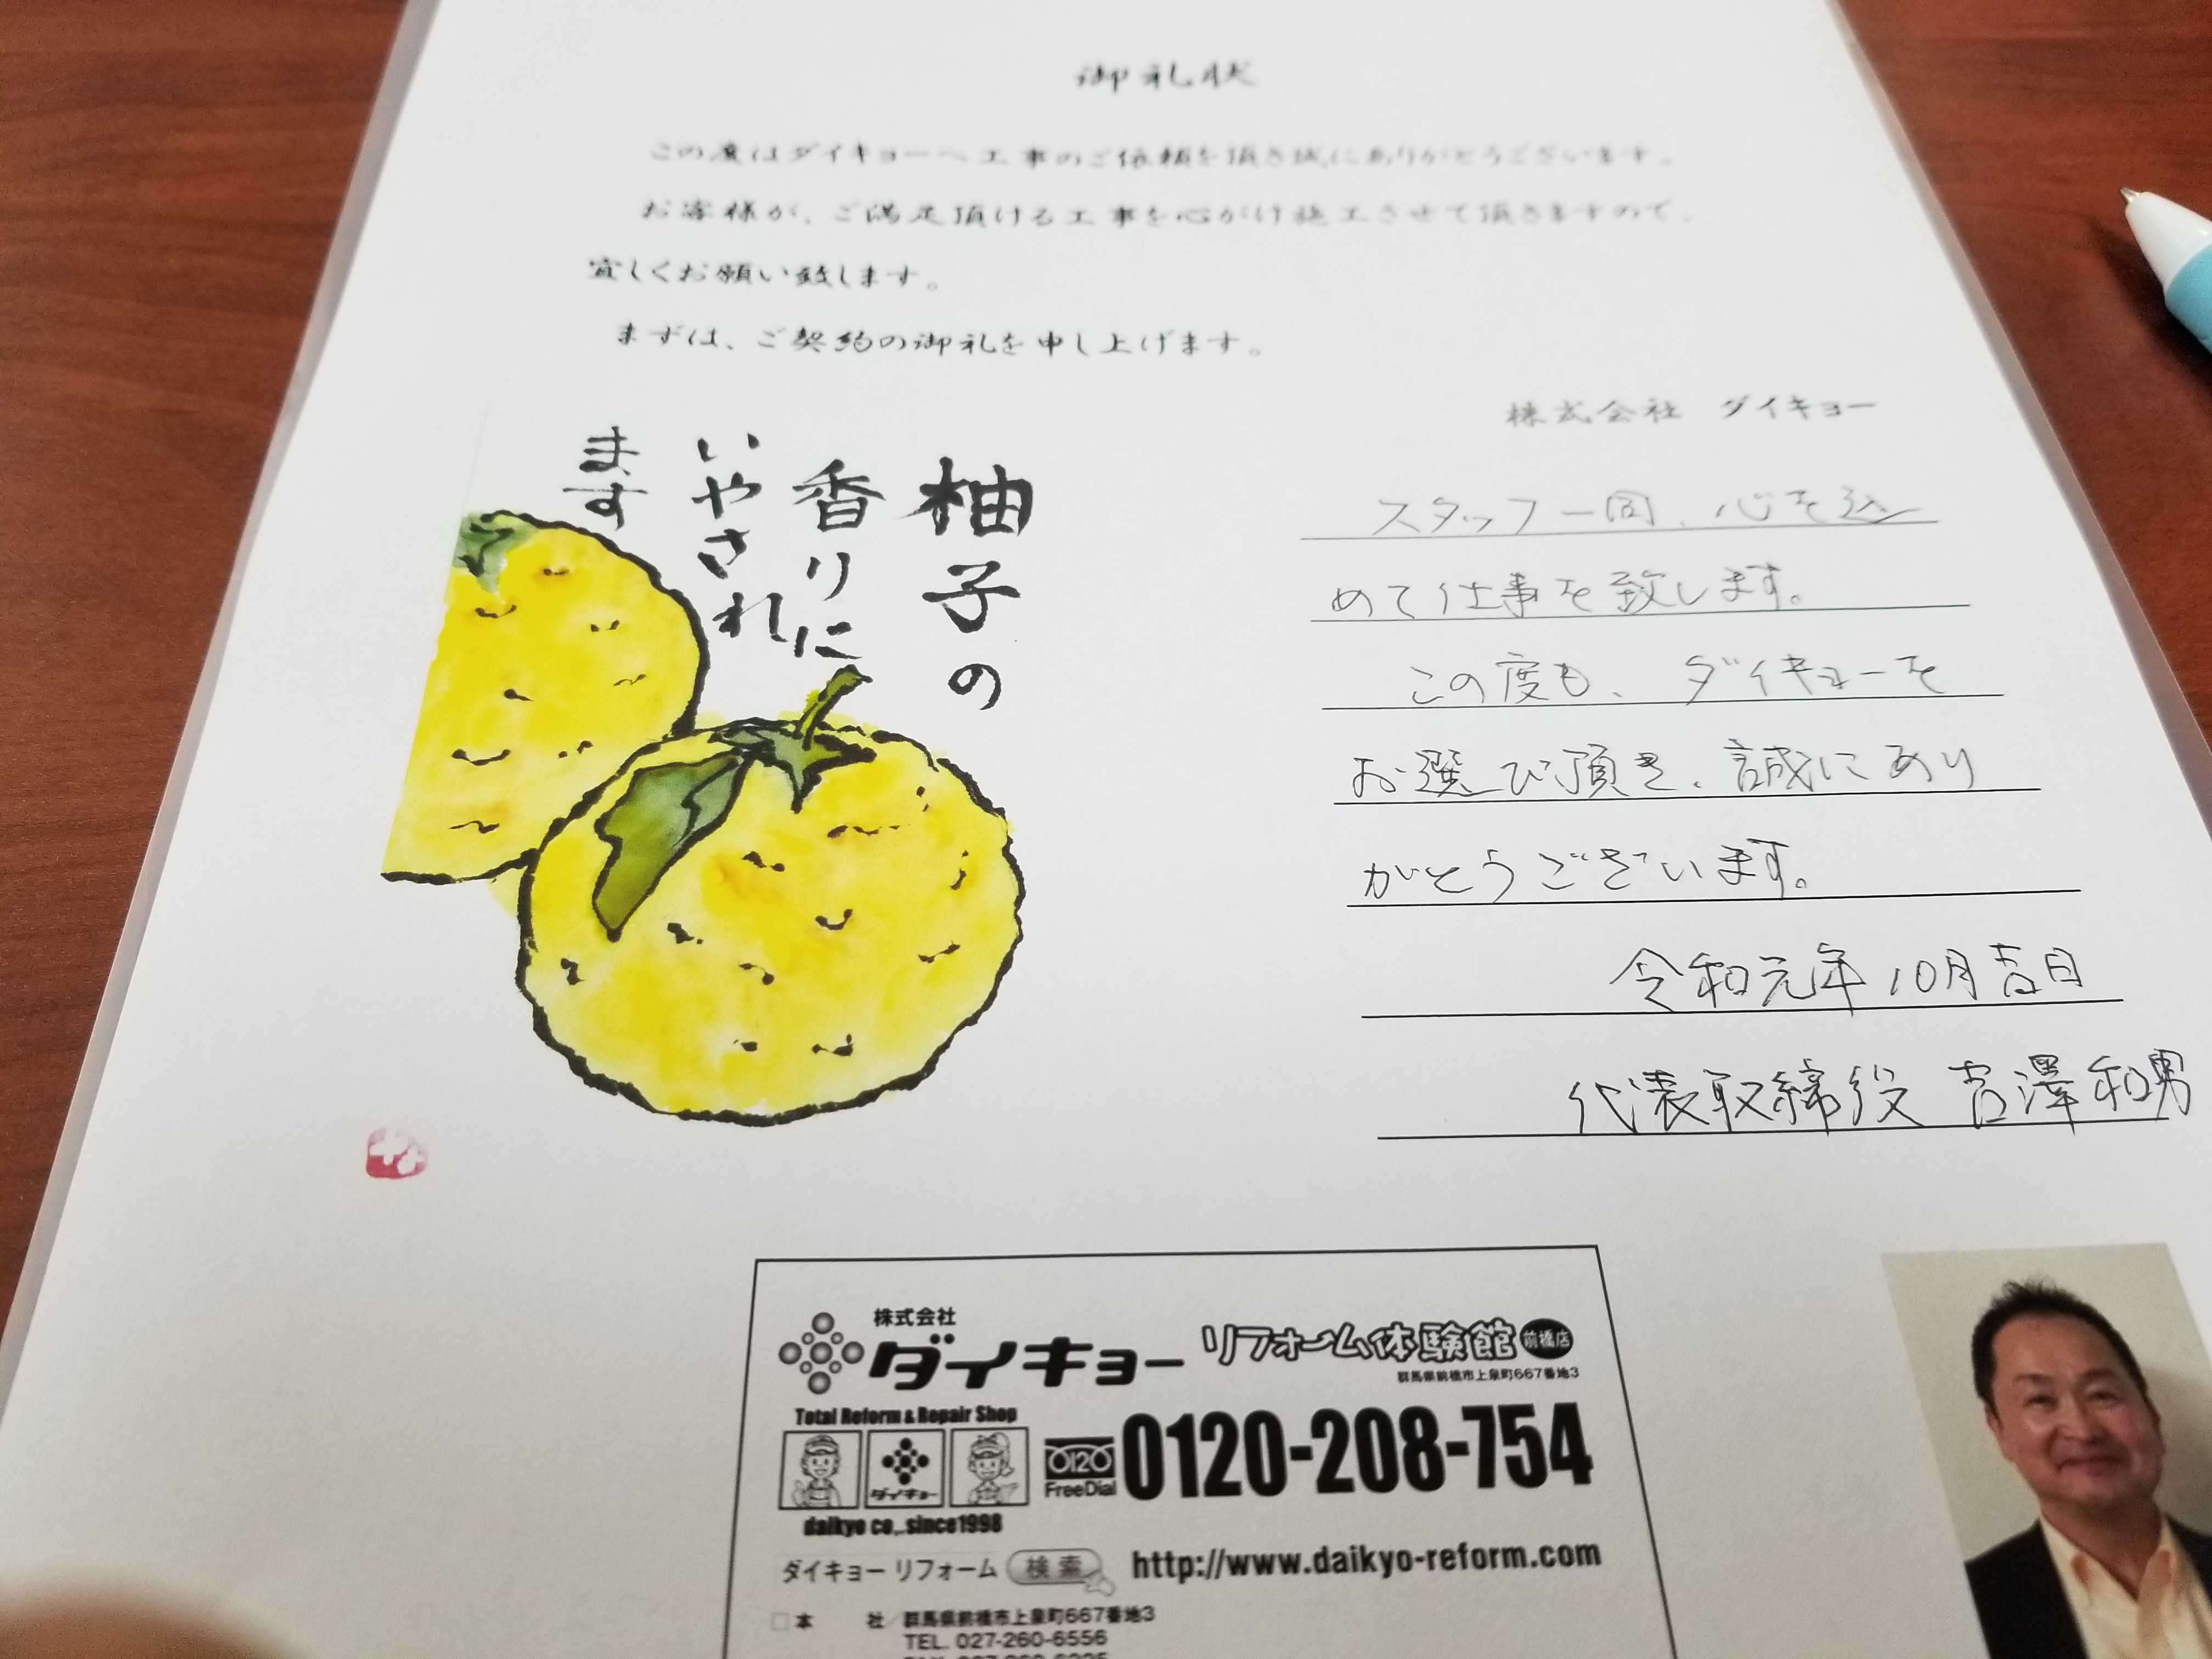 御礼状
この度はダイキョーへ工事のご依頼を頂き誠にありがとうございます。
お客様が、ご満足頂ける工事を心がけ施工させて頂きますので、
宜しくお願い致します。
まずは、ご契約の御礼を申し上げます。
株式会社 ダイキョー
柚子の
香りに
いやされ
ます
スタッフ一同、心を込
めて仕事を致します。
この度も、ダイキョーを
お選び頂き、誠にあり
がとうございます。
令和元年10月吉日
代表取締役 吉澤和男
株式会社
ダイキョー リフォーム体験館 前橋店
群馬県前橋市上泉町667番地3
Total Reform & Repair Shop
ダイキョー
0120
FreeDial
0120-208-754
daikyo co,.since1998
ダイキョー リフォーム 検索 http://www.daikyo-reform.com
□本 社/群馬県前橋市上泉町667番地3
TEL. 027-260-6556